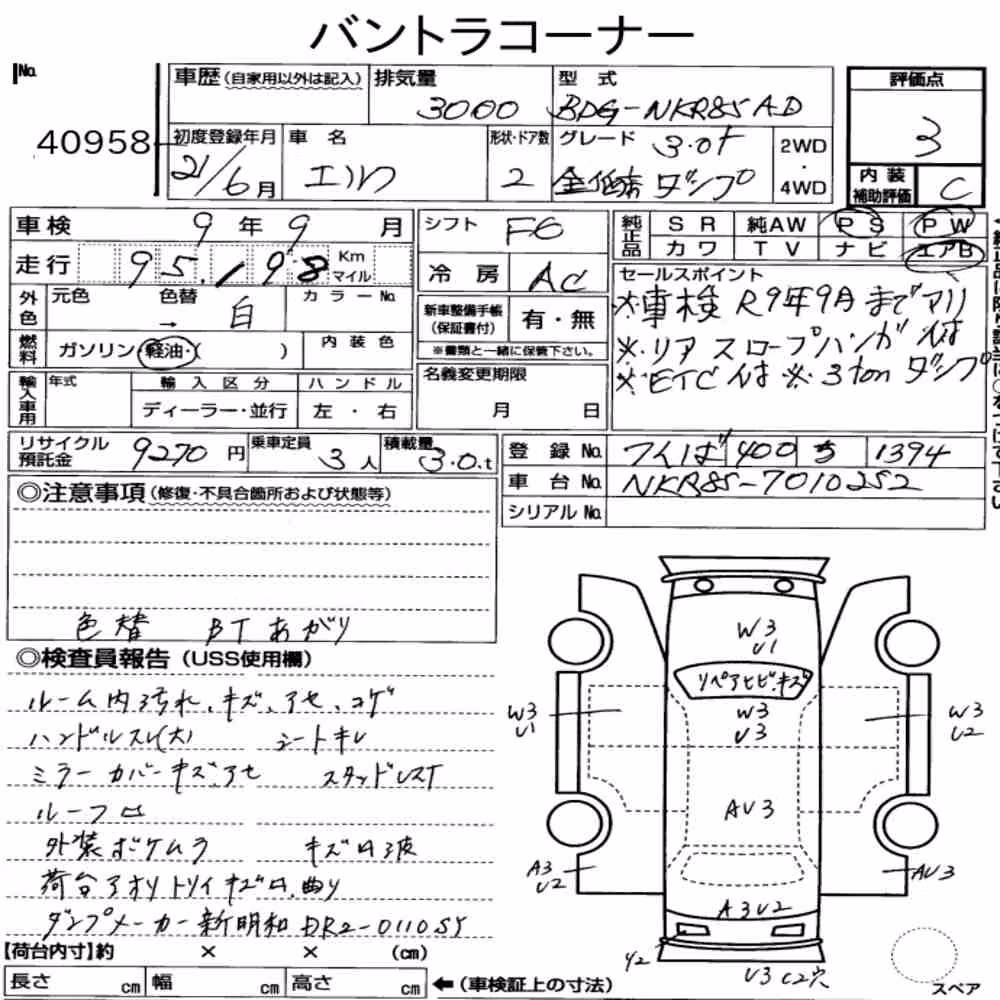 バントラコーナー
No.
40958
車歴 (自家用以外は記入)
排気量
3000
型 式
BDG-NKR85AD
評価点
3
内装補助評価
C
初度登録年月
21/6月
車 名
エルフ
形状・ドア数
2
グレード
3.0t
全低床 ダンプ
2WD
・
4WD
車検 9年9月
走行 95.198 Km マイル
シフト F6
冷房 AC
純正品
SR 純AW PS PW
カワ TV ナビ エアB
外色
元色 → 色替 白
カラーNo.
燃料 ガソリン・軽油・( )
内装色
新車整備手帳
(保証書付)
有・無
※書類と一緒に保管下さい。
セールスポイント
※車検 R9年9月までアリ
※リア スロープハンガ
※ETC ※3ton ダンプ
輸入車用
年式
輸入区分
ハンドル
ディーラー・並行
左・右
名義変更期限
月 日
リサイクル預託金 9270円
乗車定員 3人
積載量 3.0t
登録No. つくば 400 ち 1394
車台No. NKR85-7010252
シリアルNo.
◎注意事項 (修復・不具合箇所および状態等)
色替 BTあがり
◎検査員報告 (USS使用欄)
ルーム内汚れ、キズ、アセ、コゲ
ハンドルスレ(大) シートキレ
ミラーカバーキズ、アセ スタッドレスT
ルーフ凹
外装ボケムラ キズ凹波
荷台アオリトリイキズ凹、曲り
ダンプメーカー新明和 DR2-0110SY
【荷台内寸】約 × × (cm)
長さ cm 幅 cm 高さ cm ←(車検証上の寸法)
W3
U1
リペアヒビ・キズ
W3
U3
W3
U1
W3
U2
AU3
A3
U2
AU3
A3U2
Y2
U3 C2穴
スペア